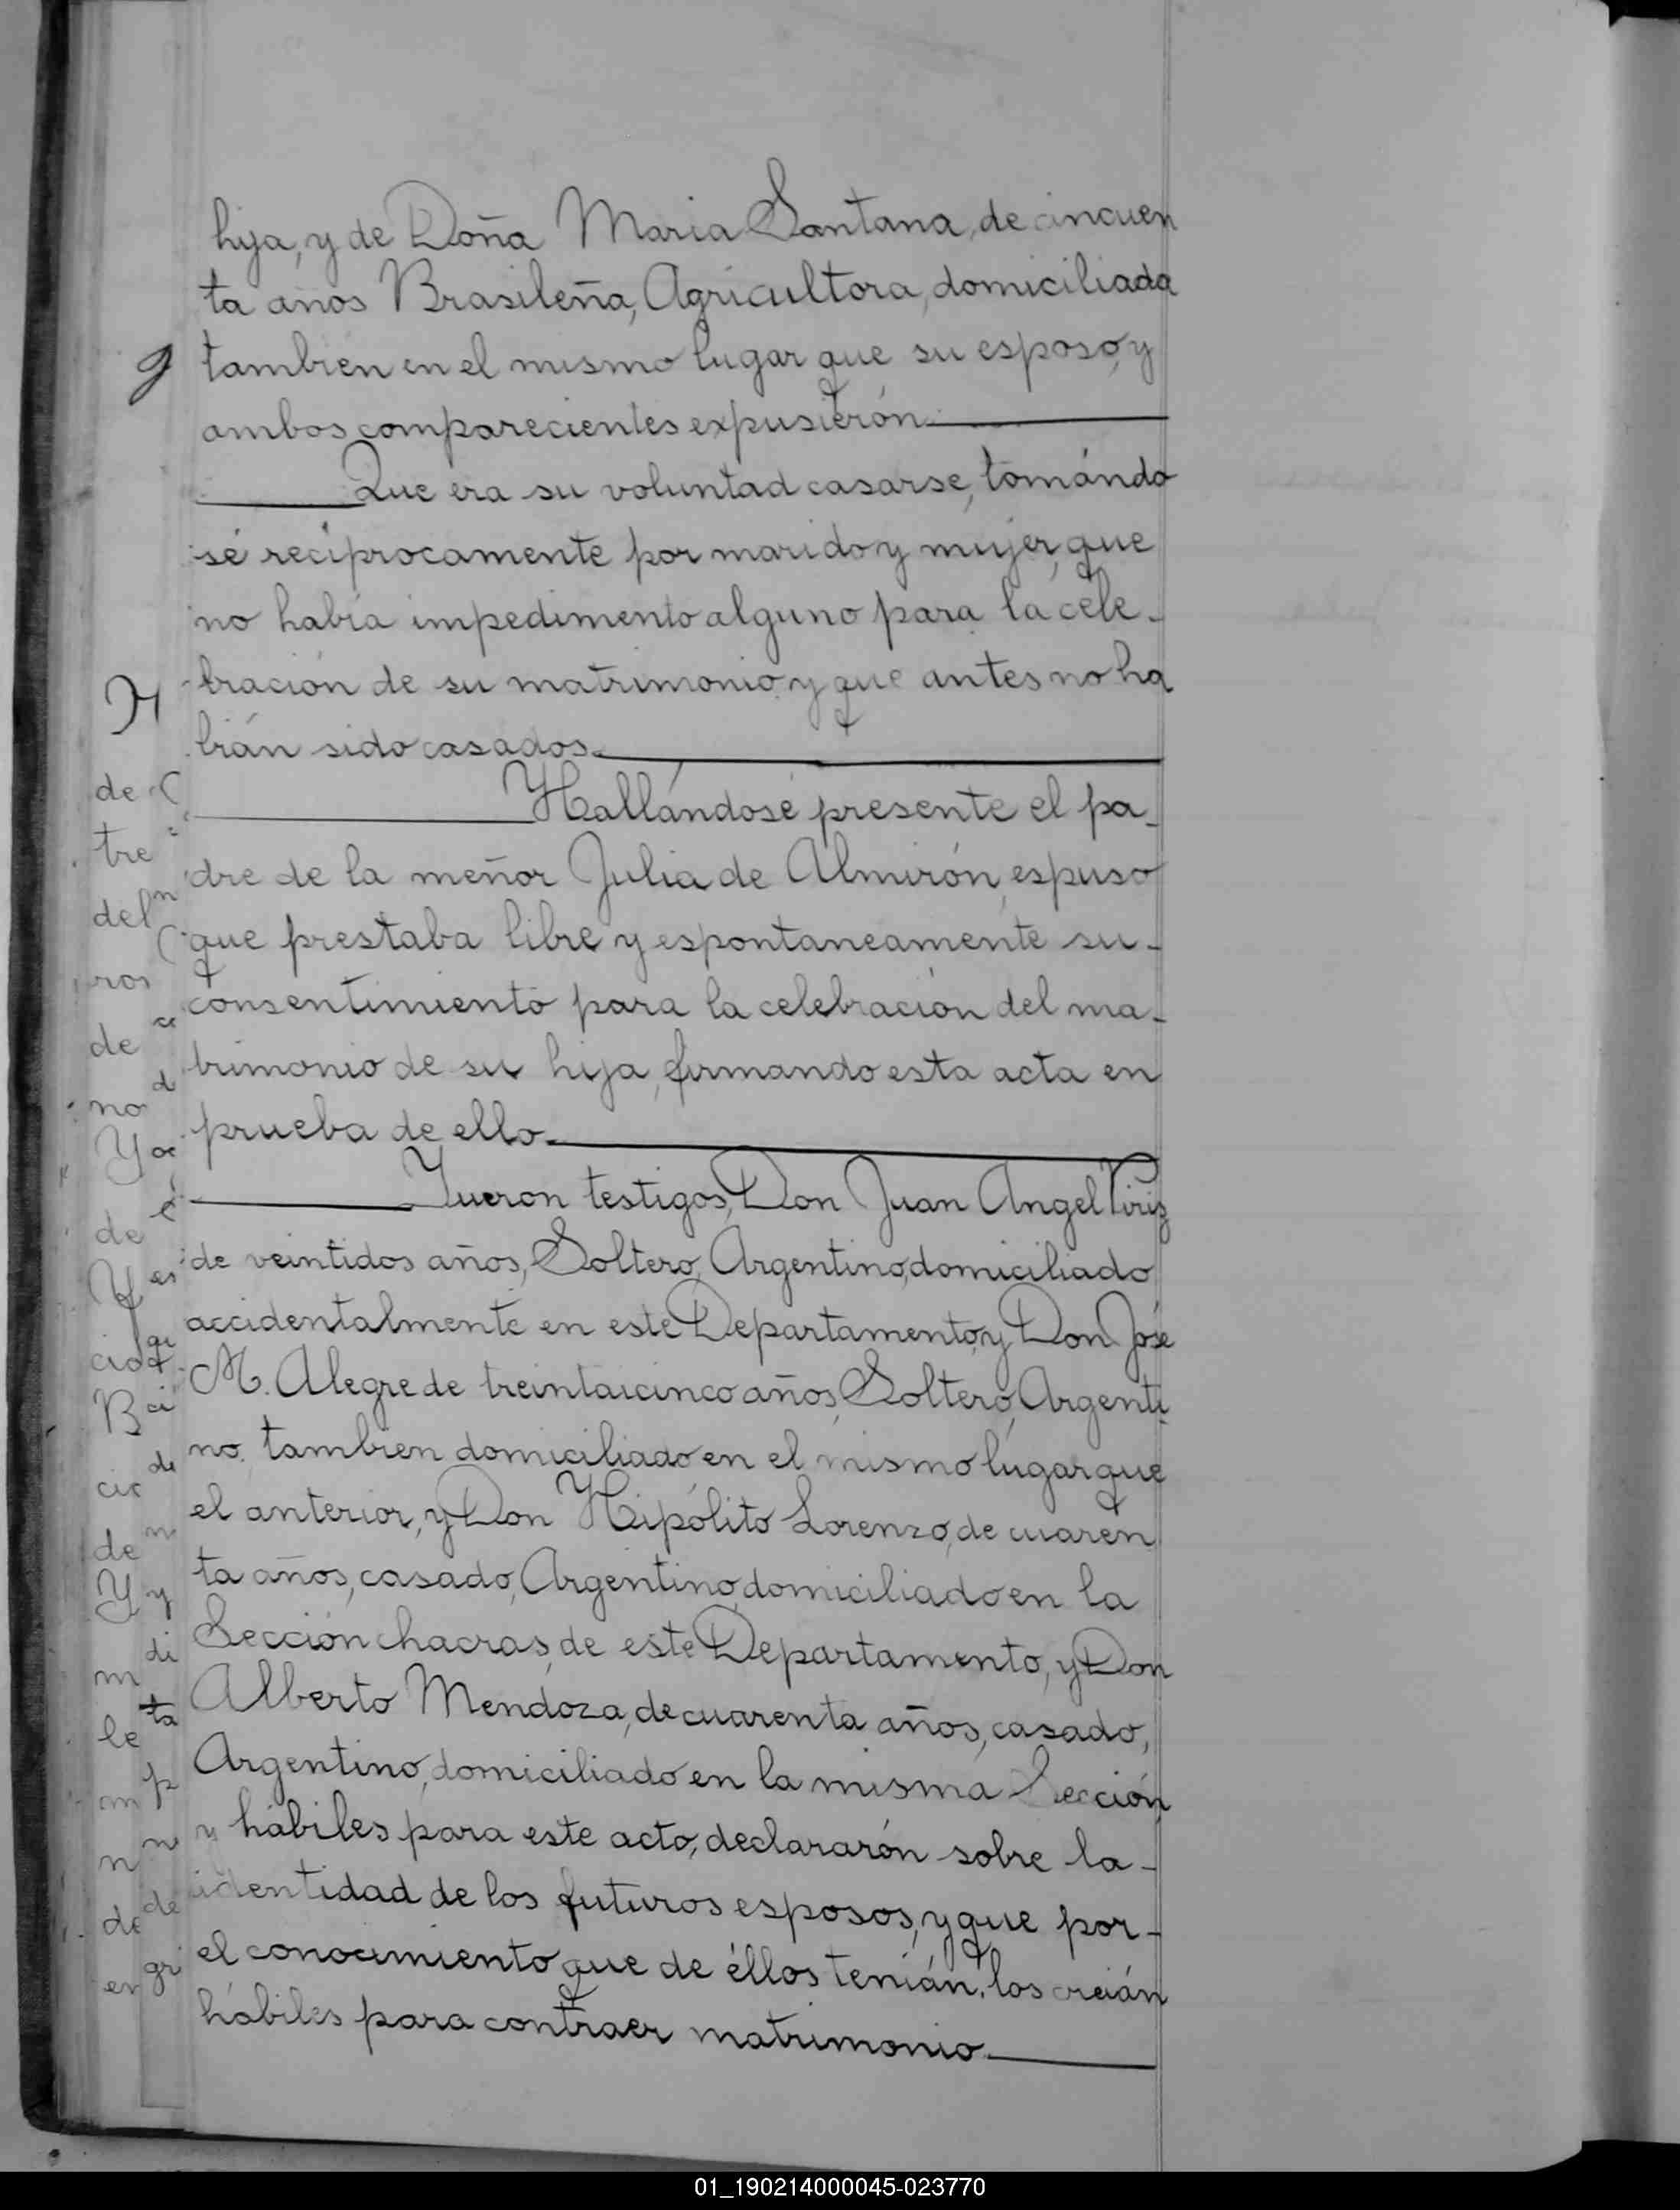 hija, y de Doña Maria Santana, de cincuen
ta años Brasileña, Agricultora, domiciliada
tambien en el mismo lugar que su esposo, y
ambos comparecientes expusierón.
Que era su voluntad casarse, tomándo
sé reciprocamente por marido y mujer, que
no había impedimento alguno para la cele-
bración de su matrimonio y que antes no ha
bián sido casados.
Hallándose presente el pa-
dre de la meñor Julia de Almirón, espuso
que prestaba libre y espontaneamente su-
consentimiento para la celebración del ma-
trimonio de su hija, firmando esta acta en
prueba de ello.
Fueron testigos, Don Juan Angel Piriz
de veintidos años, Soltero, Argentino, domiciliado
accidentalmente en este Departamento, y Don José
M. Alegre de treintaicinco años, Soltero, Argenti
no, tambien domiciliado en el mismo lugar que
el anterior, y Don Hipólito Lorenzo, de cuaren
ta años, casado, Argentino, domiciliado en la
Sección chacras, de este Departamento, y Don
Alberto Mendoza, de cuarenta años, casado,
Argentino, domiciliado en la misma Sección,
y hábiles para este acto, declararón sobre la-
identidad de los futuros esposos, y que por-
el conocimiento que de éllos tenián, los creián
hábiles para contraer matrimonio.
01_190214000045-023770